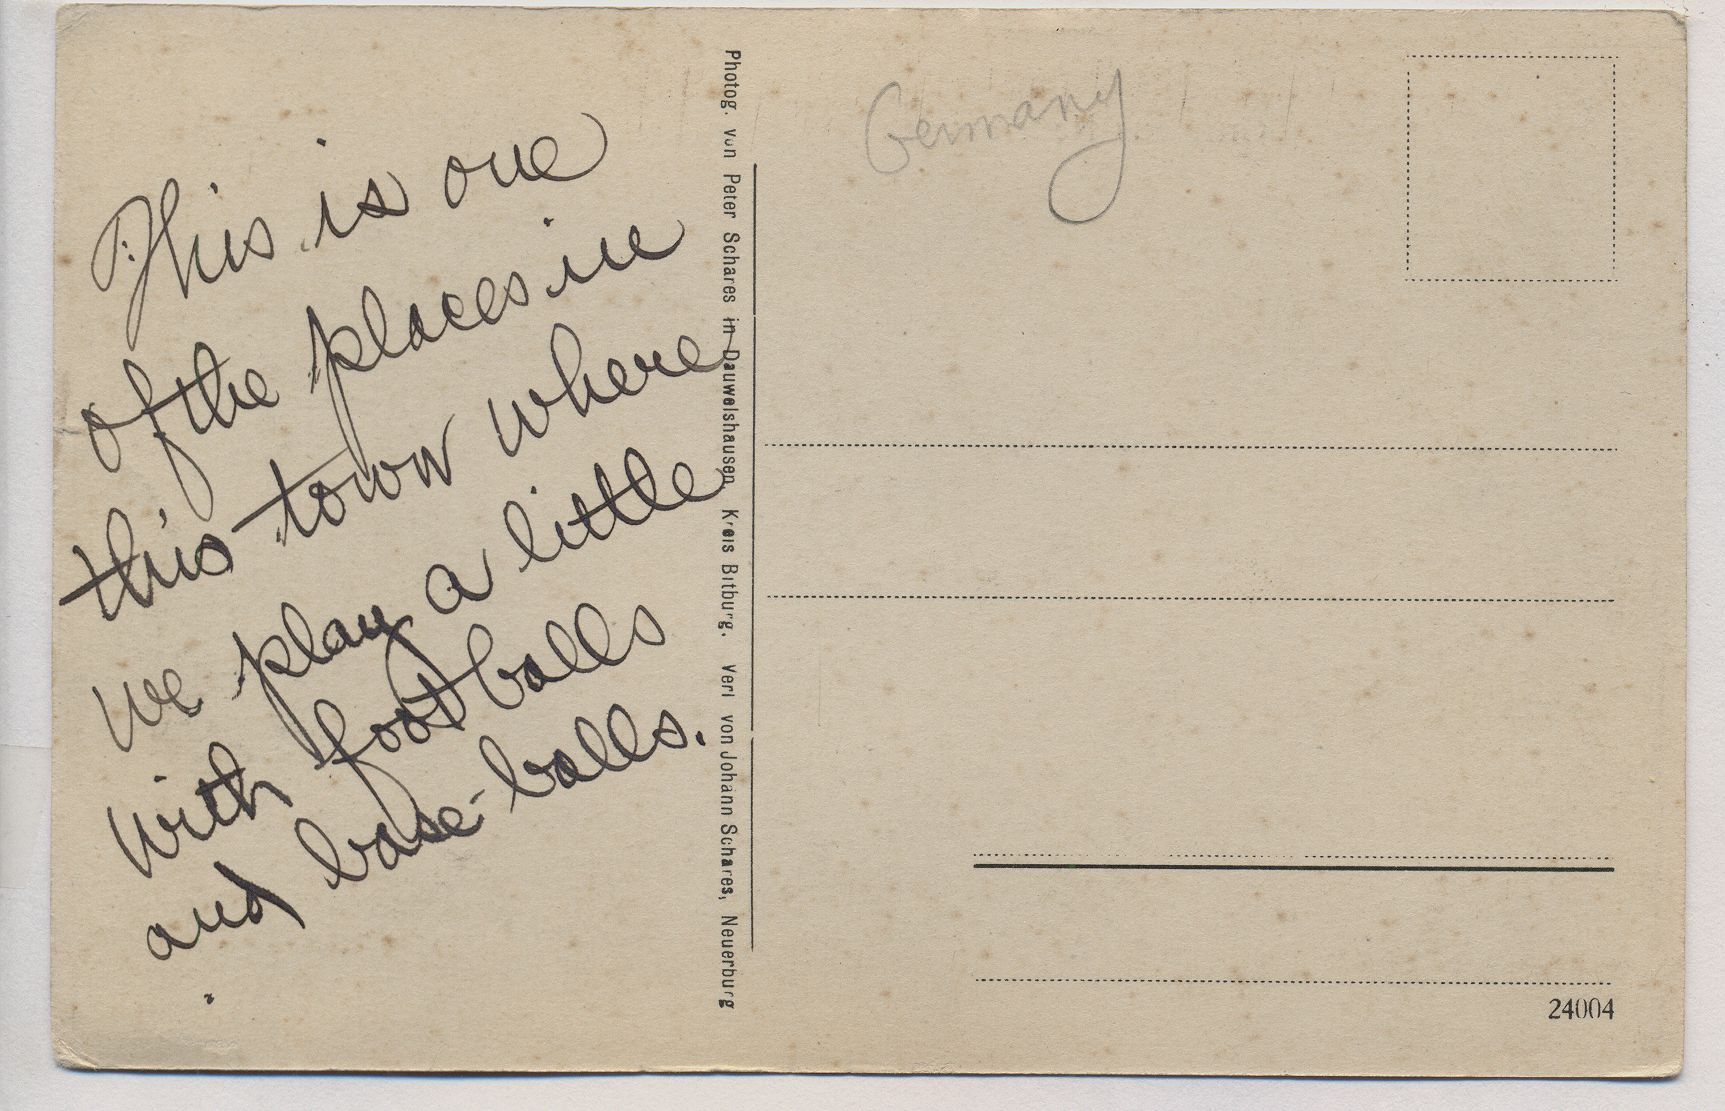 This is one
of the places in
this town where
we play a little
with foot balls
and base-balls.
Photog. von Peter Schares in Dauwelshausen, Kreis Bitburg. Verl von Johann Schares, Neuerburg
Germany
24004